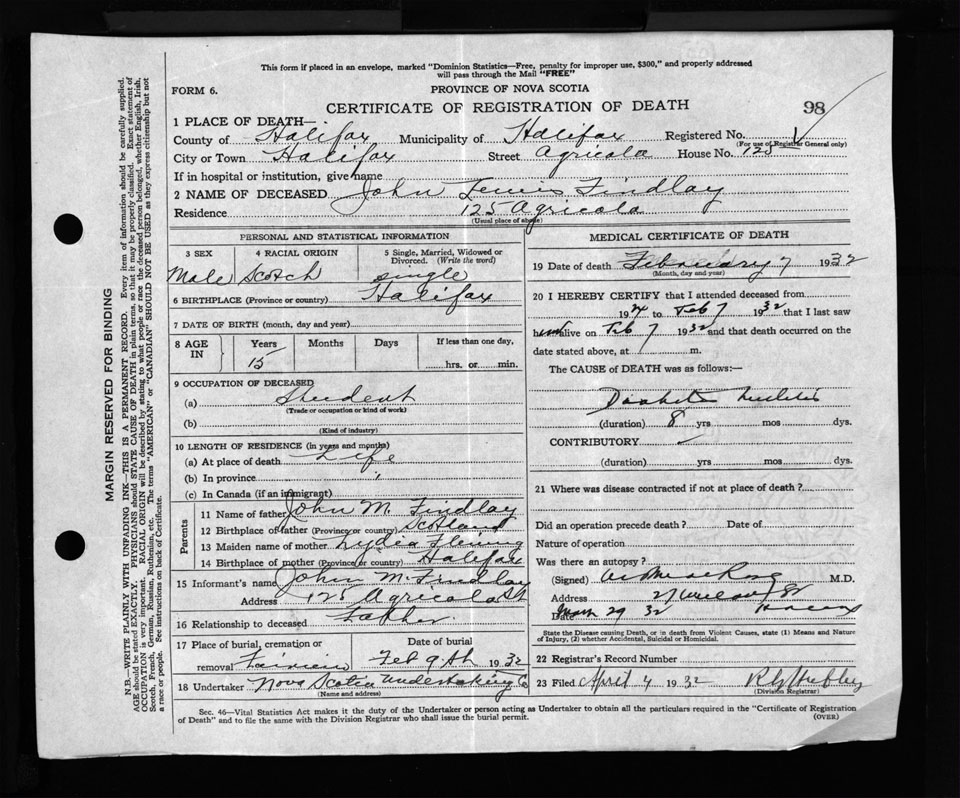 This form if placed in an envelope, marked "Dominion Statistics—Free, penalty for improper use, $300," and properly addressed
will pass through the Mail "FREE"
FORM 6.
PROVINCE OF NOVA SCOTIA
CERTIFICATE OF REGISTRATION OF DEATH
98
1 PLACE OF DEATH—
County of Halifax Municipality of Halifax Registered No.
(For use of Registrar General only)
City or Town Halifax Street Agricola House No. 125
If in hospital or institution, give name
2 NAME OF DECEASED John Lewis Findlay
Residence 125 Agricola
(Usual place of abode)
PERSONAL AND STATISTICAL INFORMATION
3 SEX 4 RACIAL ORIGIN 5 Single, Married, Widowed or Divorced. (Write the word)
Male Scotch single
6 BIRTHPLACE (Province or country) Halifax
7 DATE OF BIRTH (month, day and year)
8 AGE IN Years Months Days If less than one day,
15 hrs. or min.
9 OCCUPATION OF DECEASED
(a) Student
(Trade or occupation or kind of work)
(b)
(Kind of industry)
10 LENGTH OF RESIDENCE (in years and months)
(a) At place of death Life
(b) In province "
(c) In Canada (if an immigrant)
Parents
11 Name of father John M. Findlay
12 Birthplace of father (Province or country) Scotland
13 Maiden name of mother Lydia Fleming
14 Birthplace of mother (Province or country) Halifax
15 Informant's name John M. Findlay
Address 125 Agricola St
16 Relationship to deceased Father.
17 Place of burial, cremation or Date of burial
removal Fairview Feb 9th 1932
18 Undertaker Nova Scotia Undertaking Co
(Name and address)
MEDICAL CERTIFICATE OF DEATH
19 Date of death February 7 1932
(Month, day and year)
20 I HEREBY CERTIFY that I attended deceased from
1924 to Feb 7 1932 that I last saw
him alive on Feb 7 1932 and that death occurred on the
date stated above, at m.
The CAUSE of DEATH was as follows:—
Diabetes Mellitus
(duration) 8 yrs mos dys.
CONTRIBUTORY
(duration) yrs mos dys.
21 Where was disease contracted if not at place of death?
Did an operation precede death? Date of
Nature of operation
Was there an autopsy?
(Signed) M.D.
Address 27
Date 29 32
State the Disease causing Death, or in death from Violent Causes, state (1) Means and Nature
of Injury, (2) whether Accidental, Suicidal or Homicidal.
22 Registrar's Record Number
23 Filed April 4 1932
(Division Registrar)
Sec. 46—Vital Statistics Act makes it the duty of the Undertaker or person acting as Undertaker to obtain all the particulars required in the "Certificate of Registration
of Death" and to file the same with the Division Registrar who shall issue the burial permit. (OVER)
MARGIN RESERVED FOR BINDING
N.B.—WRITE PLAINLY WITH UNFADING INK—THIS IS A PERMANENT RECORD. Every item of information should be carefully supplied.
AGE should be stated EXACTLY. PHYSICIANS should STATE CAUSE OF DEATH in plain terms, so that it may be properly classified. Exact statement of
OCCUPATION is very important. RACIAL ORIGIN will be described by stating to what people or race the deceased person belonged, whether English, Irish,
Scotch, French, German, Russian, Ruthenian, etc. The terms "AMERICAN" or "CANADIAN" SHOULD NOT BE USED as they express citizenship but not
a race or people. See instructions on back of Certificate.